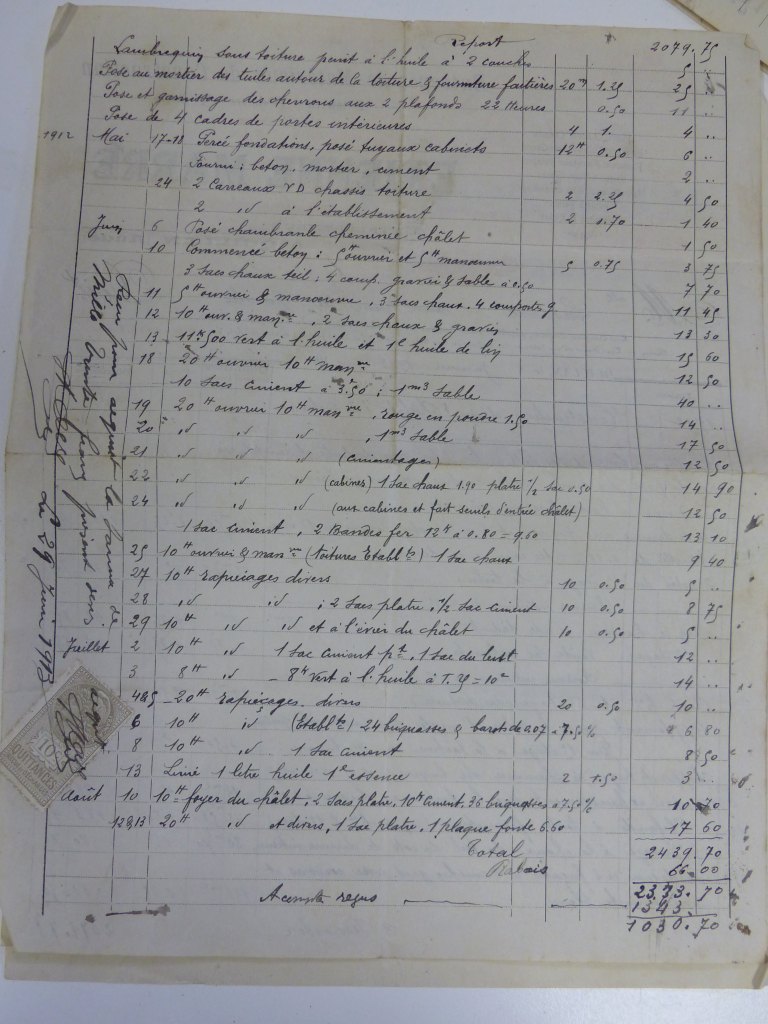 Report 2079.75
Lambrequin sous toiture peint à l'huile à 2 couches 5 ..
Pose au mortier des tuiles autour de la toiture & fourniture faitières 20m 1.25 25 ..
Pose et garnissage des chevrons aux 2 plafonds 22 Heures 0.50 11 ..
Pose de 4 cadres de portes intérieures 4 1. 4 ..
1912 Mai 17-18 Percé fondations, posé tuyaux cabinets 12H 0.50 6 ..
Fourni: beton, mortier, ciment 2 ..
24 2 Carreaux V D chassis toiture 2 2.25 4 50
2 id à l'établissement 2 0.70 1 40
Juin 6 Posé chambranle cheminée châlet 1 50
10 Commencé beton: 5H ouvrier et 5H manoeuvre 5 0.75 3 75
3 Sacs chaux teil; 4 comp. gravier & sable à 0.50 7 70
11 5H ouvrier & manoeuvre, 3 sacs chaux, 4 comportes g 11 45
12 10H ouv. & man.re, 2 sacs chaux & gravier 13 30
13 11k.500 vert à l'huile et 1l huile de lin 15 60
18 20H ouvrier 10H man.re 12 50
10 Sacs ciment à 3f.50; 1m3 sable 40 ..
19 20H ouvrier 10H man.re, rouge en poudre 1.50 14 ..
20 id id id, 1m3 sable 17 50
21 id id id (cimentages) 12 50
22 id id id (cabines) 1 Sac chaux 1.90 platre 1/2 Sac 0.50 14 90
24 id id id (aux cabines et fait seuils d'entrée châlet) 12 50
1 Sac ciment, 2 Bandes fer 12k à 0.80 = 9.60 13 10
25 10H ouvrier & man.re (toitures Etabl.te) 1 Sac chaux 9 40
27 10H rapieçages divers 10 0.50 5 ..
28 id id; 2 Sacs platre, 1/2 Sac ciment 10 0.50 8 75
29 10H id id et à l'évier du châlet 10 0.50 5 ..
Juillet 2 10H id 1 Sac ciment pt, 1 Sac du lent 12 ..
3 8H id _ 8k Vert à l'huile à 1.25 = 10f 14 ..
4&5 _ 20H rapieçages divers 20 0.50 10 ..
6 10H id (Etabl.te) 24 briquasses & barots de 0.07 à 7.50 % 6 80
8 10H id 1 Sac ciment 8 50
13 Livré 1 litre huile 1l essence 2 1.50 3 ..
Août 10 10H foyer du châlet, 2 Sacs platre, 10k ciment, 36 briquasses à 7.50 % 10 70
12&13 20H id et divers, 1 Sac platre, 1 plaque fonte 6.60 17 60
Total 2439.70
Rabais 66.00
2373.70
Acompte reçus 1343.
1030.70
Pour acquit la somme de
Mille trente francs
le 29 Juin 1913
acquit
10
QUITTANCES